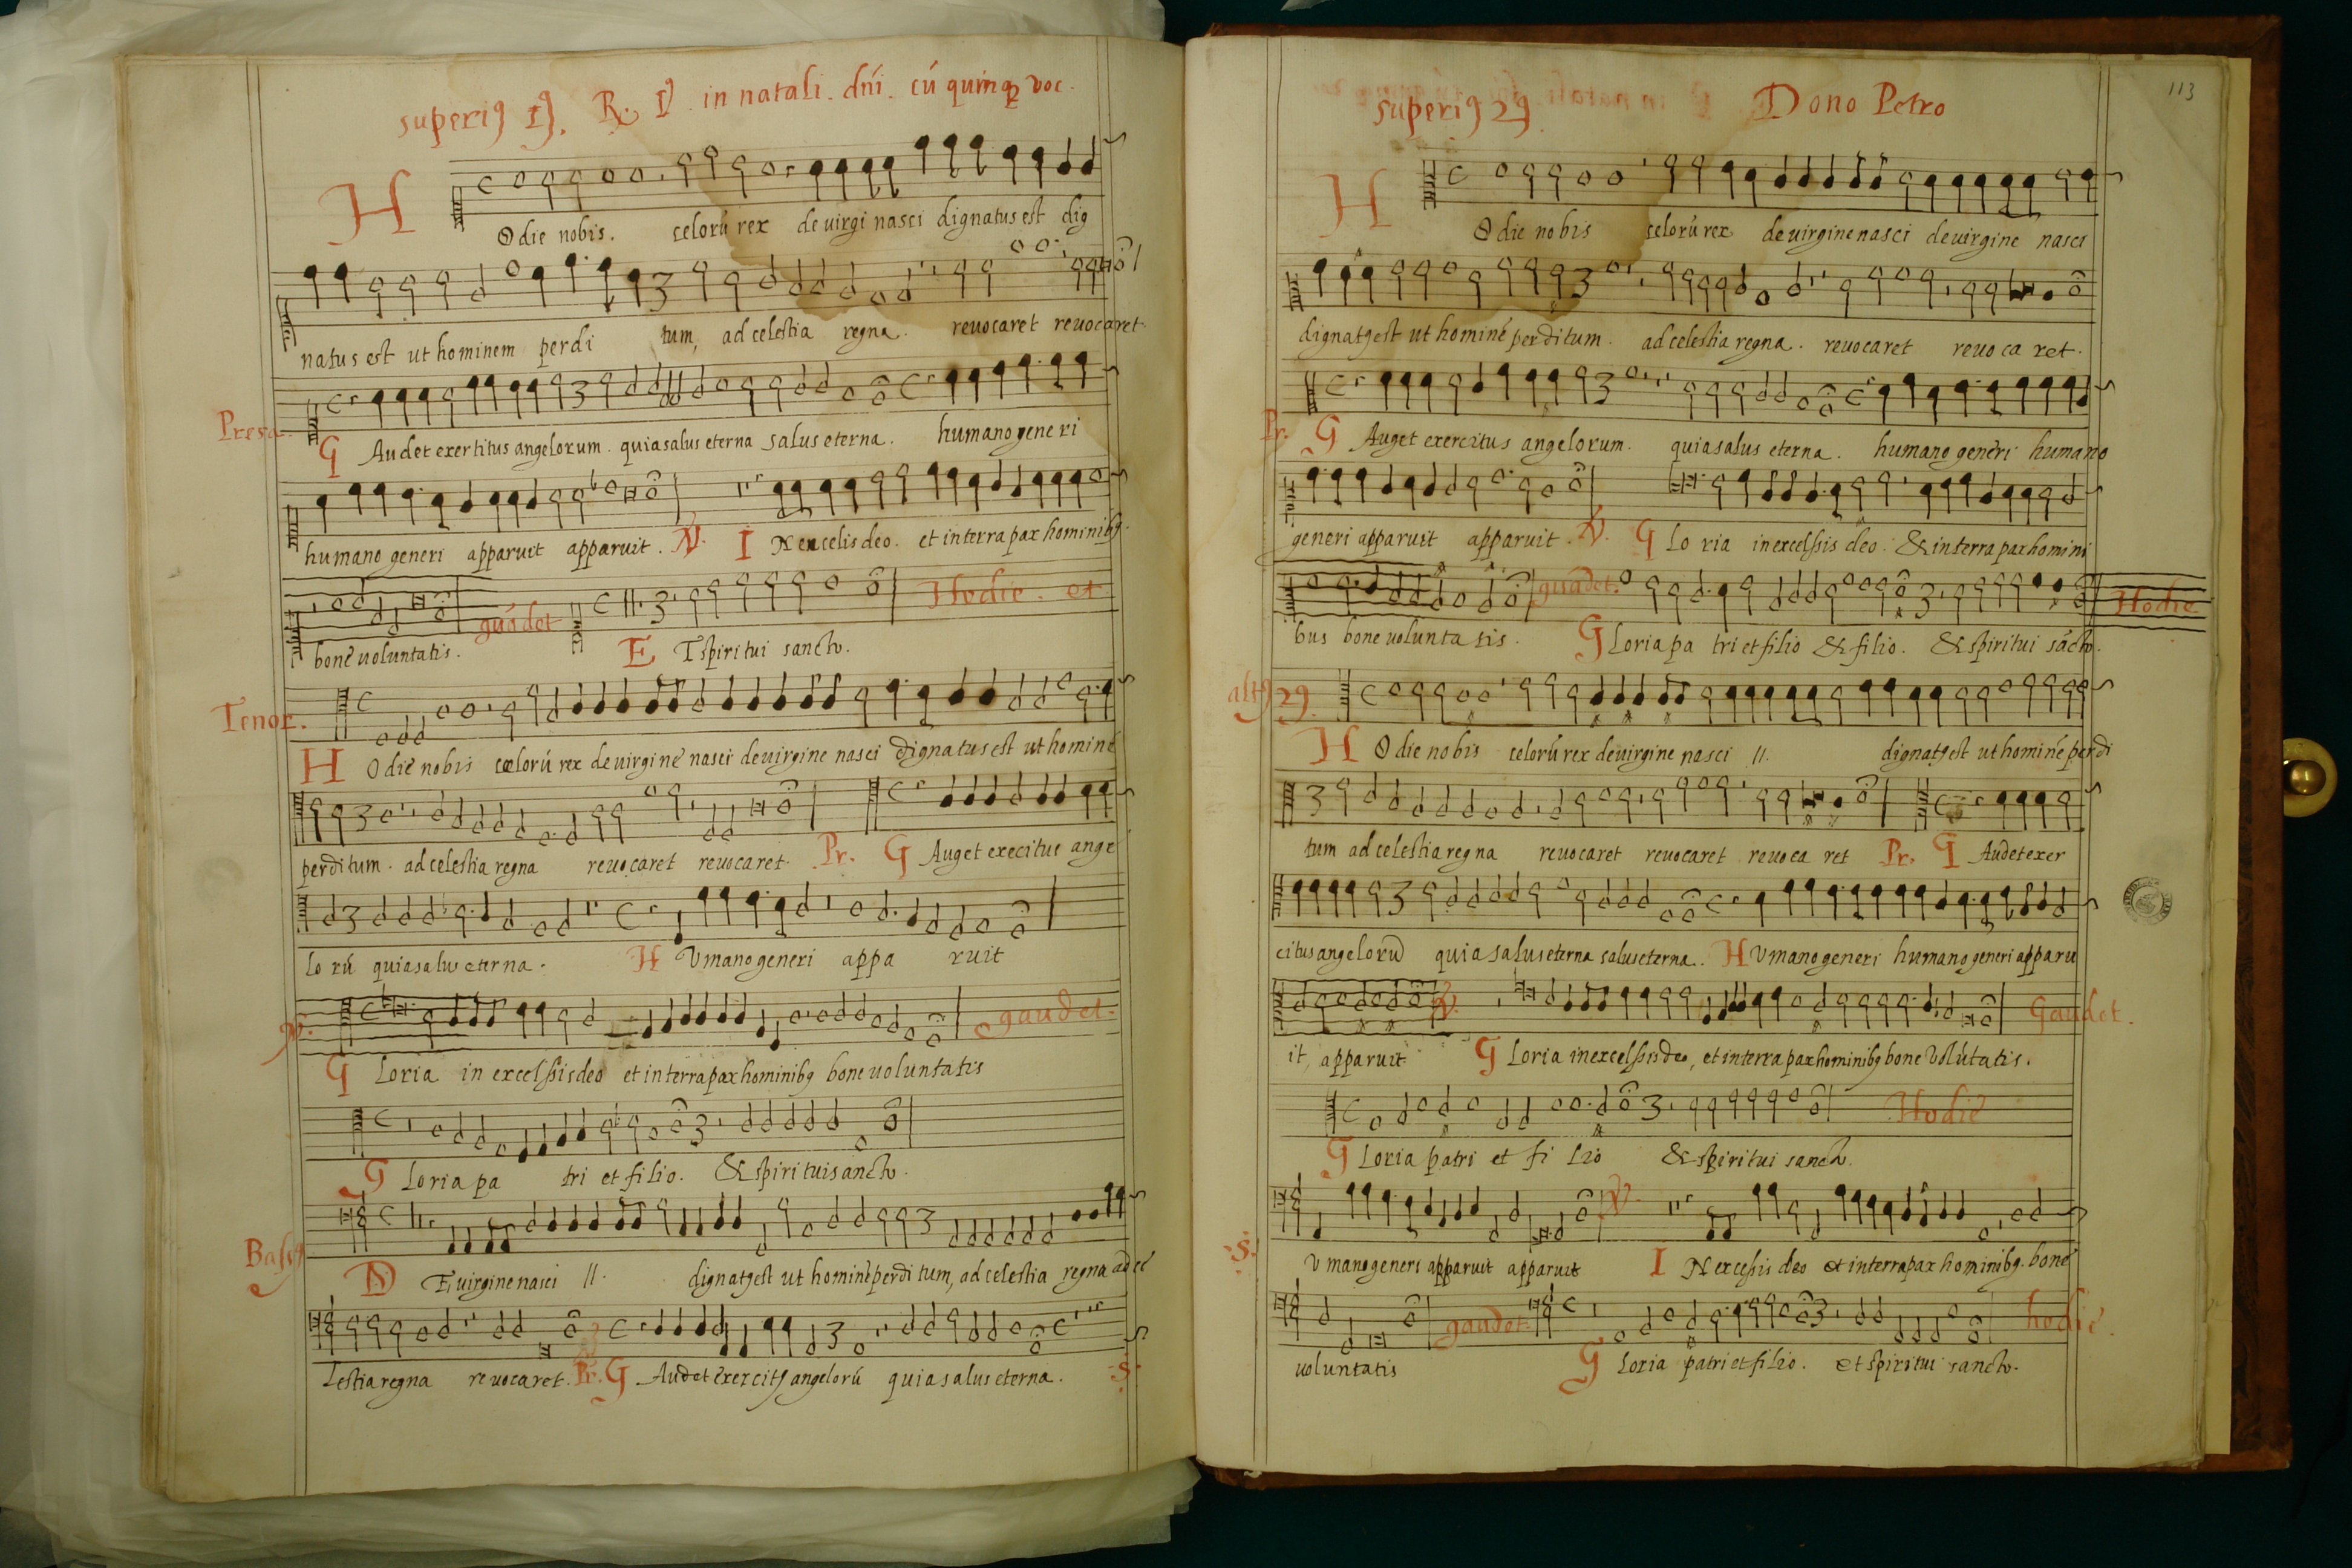 superiꝯ 1ꝯ. R. I in natali. dñi. cú quinqꝫ voc.
H Odie nobis. celorú rex de uirgi nasci dignatus est dig
natus est ut hominem perdi tum, ad celestia regna. reuocaret reuocaret.
Presa. G Audet exertitus angelorum. quia salus eterna salus eterna. humano generi
humano generi apparuit apparuit. V. I N excelis deo. et in terra pax hominibꝯ.
bone uoluntatis. gaudet E T spiritui sancto. Hodie. et
Tenor. H Odie nobis celorú rex de uirgine nasci de uirgine nasci dignatus est ut hominé
perditum. ad celestia regna reuocaret reuocaret. Pr. G Auget execitus ange
lo rú quia salus eterna. H Vmano generi appa ruit
V. G loria in excelsis deo et in terra pax hominibꝯ bone uoluntatis gaudet.
G loria pa tri et filio. & spiritui sancto.
Bassꝯ D E uirgine nasci 11. dignatꝯ est ut hominé perditum, ad celestia regna ad ce
lestia regna reuocaret. Pr. G Audet exercitꝯ angelorú quia salus eterna. .S.
113
superiꝯ 2ꝯ. Dono Petro
H Odie nobis celorú rex de uirgine nasci de uirgine nasci
dignatꝯ est ut hominé perditum. ad celestia regna. reuocaret reuo ca ret.
Pr. G Auget exercitus angelorum. quia salus eterna. humano generi humano
generi apparuit apparuit. V. G Lo ria in excelsis deo. & in terra pax homini
bus bone uolunta tis. guadet. G Loria pa tri et filio & filio. & spiritui sácto. Hodie
altꝯ 2ꝯ. H Odie nobis celorú rex de uirgine nasci 11. dignatꝯ est ut hominé perdi
tum ad celestia regna reuocaret reuocaret reuoca ret Pr. G Audet exer
citus angeloru quia salus eterna salus eterna. H Vmano generi humano generi apparu
it, apparuit V. G loria in excelsis deo, et in terra pax hominibꝯ bone volútatis. Gaudet.
G Loria patri et fi lio & spiritui sancto. Hodie
.S. V mano generi apparuit apparuit V. I N excesis deo et in terra pax hominibꝯ. bone
uoluntatis gaudet G loria patri et filio. et spiritui sancto. hodie.